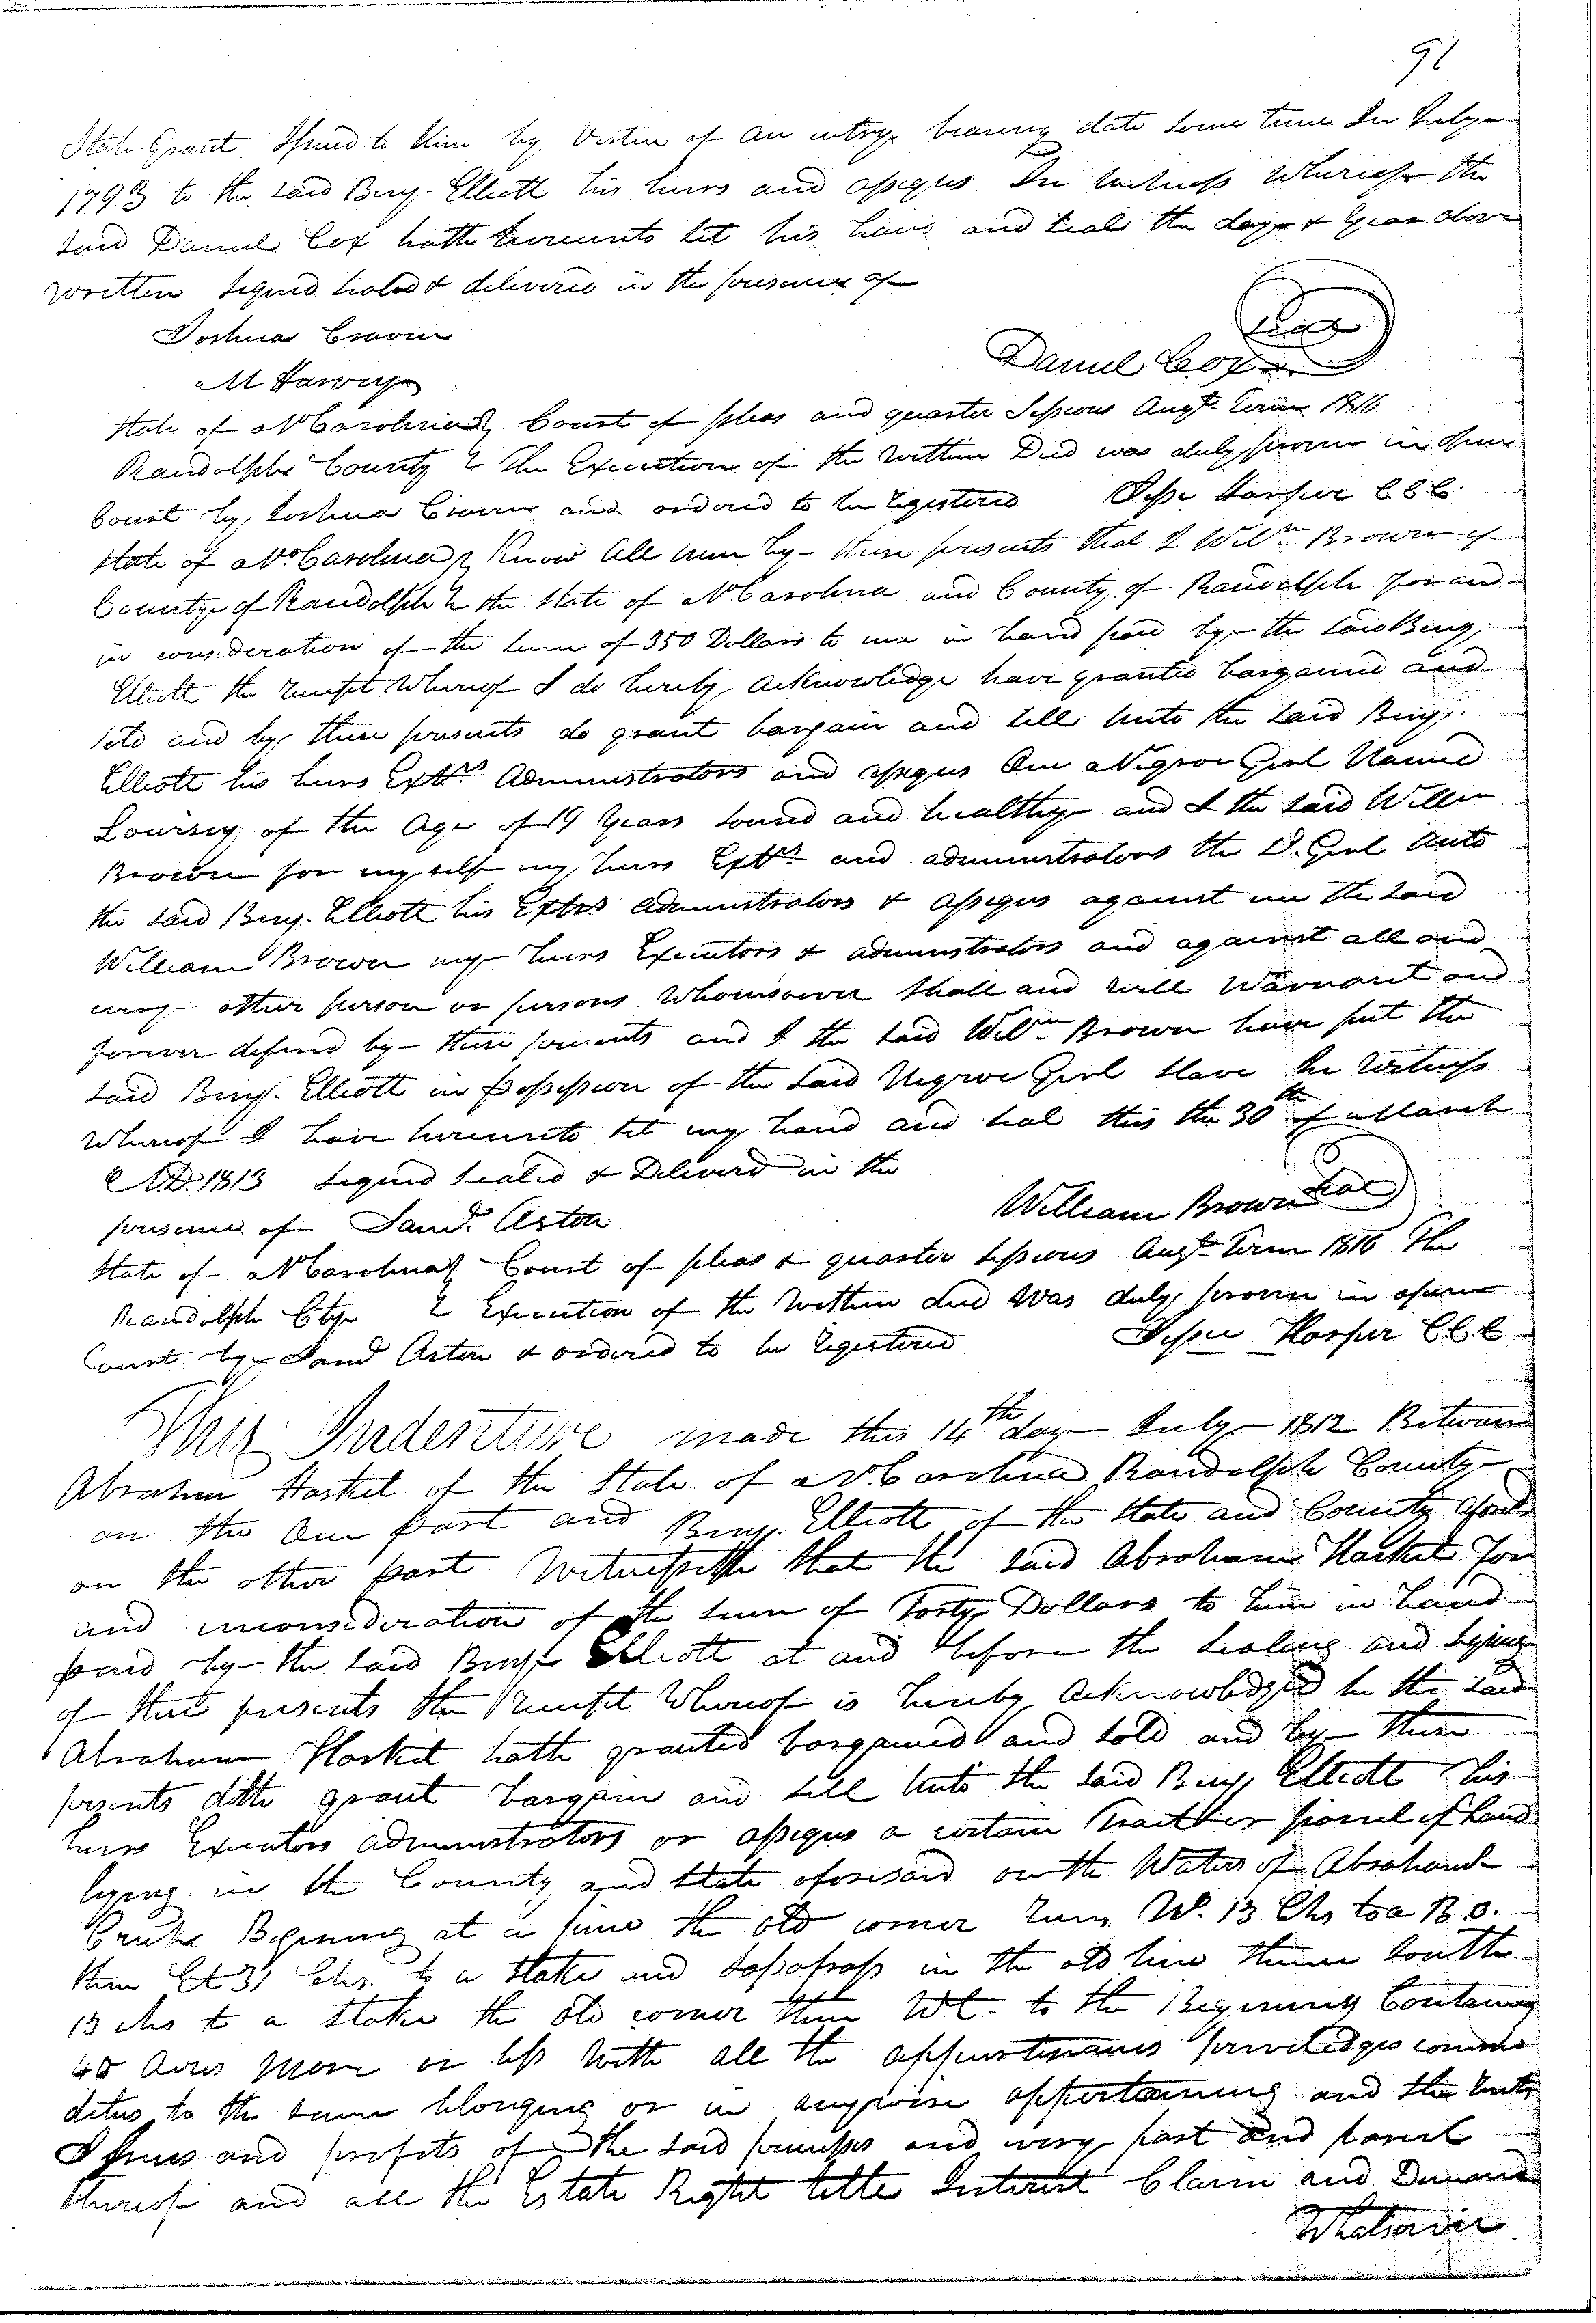 91
State Grant Issued to him by Virtue of an entry bearing date some time In July
1793 to the said Benj. Elliott his heirs and assigns In witness Whereof the
said Daniel Cox hath hereunto set his hand and seal the day & year above
written Signed sealed & delivered in the presence of
Joshua Craven
Seal
Daniel Cox
State of N Carolina } Court of pleas and quarter Sessions Augt Term 1816
Randolph County } The Execution of the within Deed was duly proven in open
Court by Joshua Craven and ordered to be Registered Jesse Harper C C C
State of No Carolina } Know all men by these presents that I Willm Brown of
County of Randolph } the State of N Carolina and County of Randolph for and
in consideration of the sum of 350 Dollars to me in hand paid by the said Benj.
Elliott the receipt Whereof I do hereby acknowledge have granted bargained and
sold and by these presents do grant bargain and sell unto the said Benj.
Elliott his heirs Extrs Administrators and assigns One Negroe Girl Named
Lourssey of the Age of 19 years sound and healthy and I the said Willm
Brown for my self my heirs Extrs and administrators the sd. Girl unto
the said Benj. Elliott his Extrs administrators & assigns against me the said
William Brown my heirs Executors & administrators and against all and
every other person or persons Whomsoever shall and will Warrant and
forever defend by these presents and I the said Willm Brown have put the
said Benj. Elliott in possession of the said Negroe Girl slave In witness
Whereof I have hereunto set my hand and seal this the 30th of March
A.D. 1813 Signed sealed & Deliverd in the
presence of Saml. Aston
William Brown Seal
State of N Carolina } Court of pleas & quarter sessions Augt Term 1816 The
Randolph Cty } Execution of the within deed was duly proven in open
Court by Saml Aston & ordered to be Registered Jesse Harper C C C
This Indenture made this 14th day July 1812 Between
Abraham Hasket of the State of N. Carolina Randolph County
on the One part and Benj. Elliott of the State and County aforesd
on the other part Witnesseth that the said Abraham Hasket for
and inconsideration of the sum of Forty Dollars to him in hand
paid by the said Benj. Elliott at and before the sealing and signing
of these presents the receipt Whereof is hereby Acknowledged he the said
Abraham Hasket hath granted bargained and sold and by these
presents doth grant bargain and sell unto the said Benj. Elliott his
heirs Executors administrators or assigns a certain Tract or parcel of Land
lying in the County and State aforesaid on the Waters of
Creek Begining at a pine the old corner runs W. 13 Chs to a B.O.
then 31 Chs. to a stake and Sassafrass in the old line thence South
13 chs to a stake the old corner then to the Begenning Containing
40 Acres More or less With all the appurtenances priviledges commo
dities to the same blonging or in anywise appertaining and the rents
Issues and profits of the said premises and every part and parcel
thereof and all the Estate Right title Interest Claim and Demand
Whatsoever